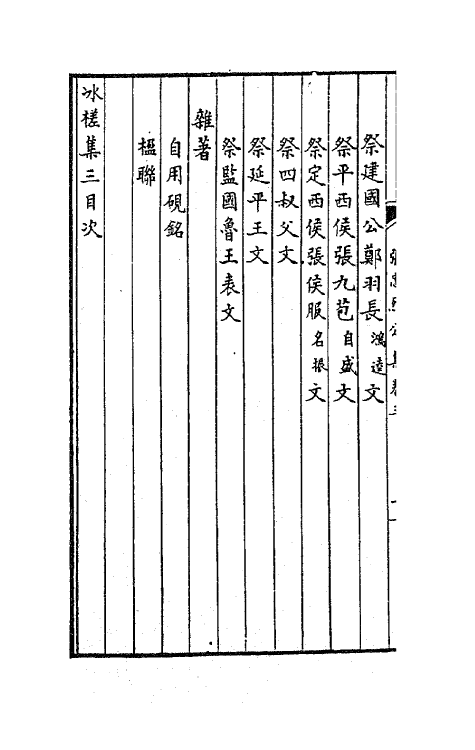 祭建國公鄭羽長鴻逵文
祭平西侯張九苞自盛文
祭定西侯張侯服名振文
祭四叔父文
祭延平王文
祭監國魯王表文
雜著
自用硯銘
楹聯
冰槎集三目次